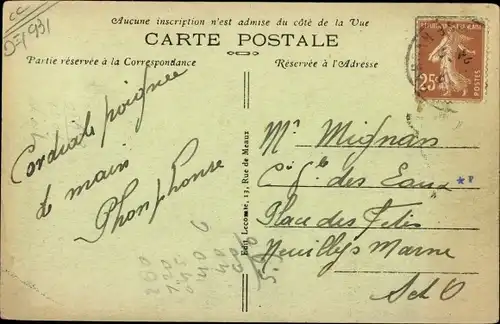 cc
D=1931
Aucune inscription n'est admise du côté de la Vue
CARTE POSTALE
Partie réservée à la Correspondance
Réservée à l'Adresse
25c
POSTES
Cordiale poignée
de main
Phonphonse
Edit. Lecomte, 13, Rue de Meaux
Mr Mignan
Cie Gle des Eaux
Place des Fêtes
Neuilly s Marne
S et O